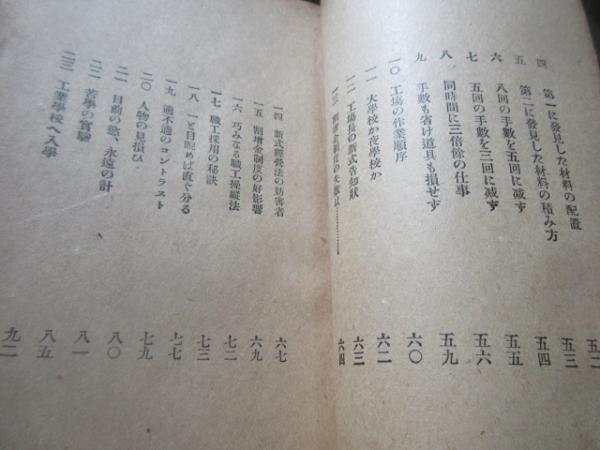 四 第一に發見した材料の配置 五二
五 第二に發見した材料の積み方 五三
六 八回の手數を五回に減ず 五四
七 五回の手數を三回に減ず 五五
八 同時間に三倍餘の仕事 五六
九 手數も省け道具も損せず 五九
一〇 工場の作業順序 六〇
一一 大學校か夜學校か 六二
一二 工場長の新式告知狀 六三
一三 割増金制度の失敗は………… 六四
一四 新式經營法の妨害者 六七
一五 割増金制度の好影響 六九
一六 巧みなる職工操縱法 七二
一七 職工採用の秘訣 七三
一八 一と目眺めば直ぐ分る 七七
一九 適不適のコントラスト 七九
二〇 人物の見損ひ 八〇
二一 目前の慾、永遠の計 八一
二二 苦學の實驗 八五
二三 工業學校へ入學 九二